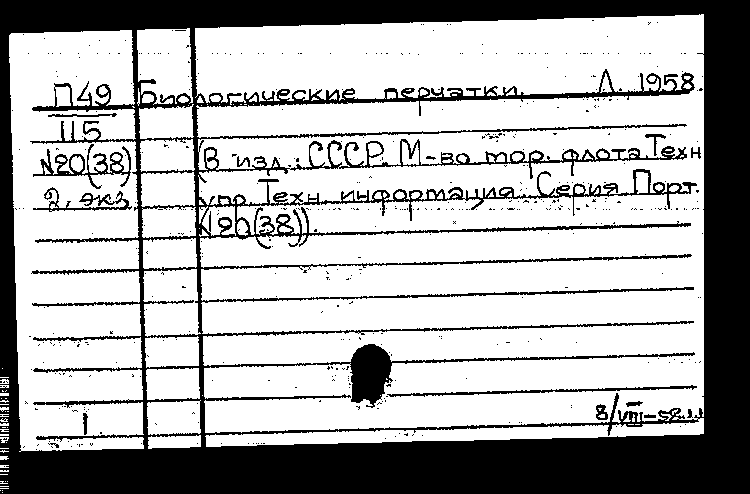 П49 Биологические перчатки. Л., 1958.
115
№20(38) (В изд.: СССР. М-во мор. флота. Техн
2. экз. упр. Техн. информация. Серия Порт.
№20(38)).
1